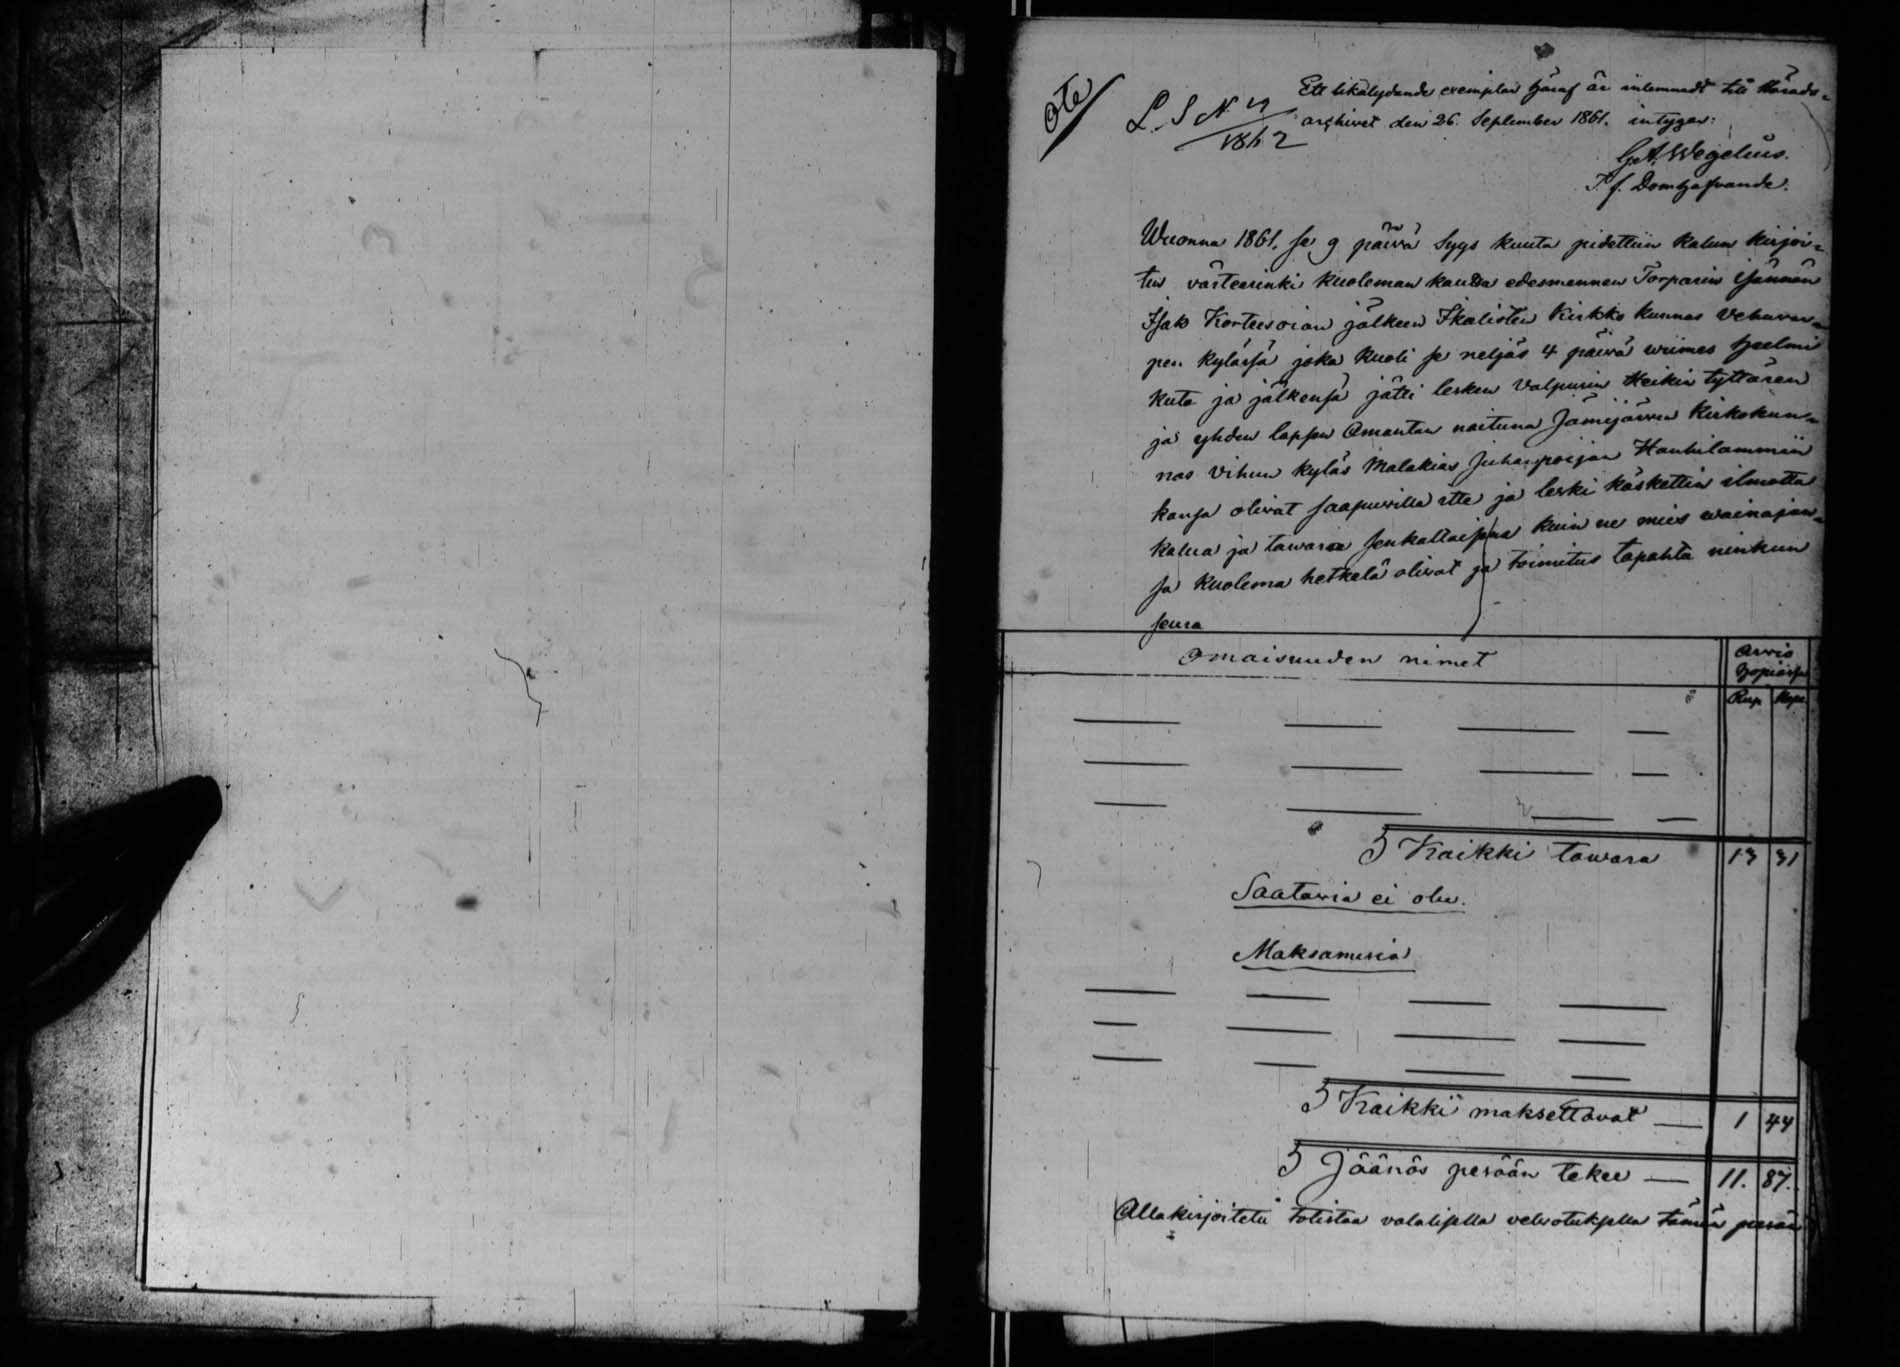 Ote
L. S N 19
1862
Ett likalydande exemplar häraf är inlemnadt till Härads=
archivet den 26. September 1861. intygar:
G. A. Wegelius.
T. f. Domhafvande.
Wuonna 1861. se 9 päivä Sygs kuuta pidettiin kalun kirjoi=
tus värteerinki kuoleman kautta edesmennen Torparin isännän
Isak Korteesoian jälkeen Ikalisten Kirkko kunnas Vehuvar=
pen kylässä joka kuoli se neljäs 4 päivä wiimes Helmi
kuta ja jälkensä jätti lesken Valpurin Heikin tyttären
ja yhden lapsen Amantan naituna Jämijärven Kirkokun=
nas Vihun kyläs Malakias Juhanpoijan Hanhilammiin
kansa olivat saapuvilla itte ja leski käskettin ilmotta
kalua ja tavaraa senkaltaisina kuin ne mies wainajan=
sa kuolema hetkelä olivat ja toimitus tapahtu ninkun
seura
Omaisuuden nimet
Arvio
Hopiassa
Rup. Kope
Kaikki tavara 13 31
Saatavia ei ole.
Maksamisia
Kaikki maksettavat — 1 44
Jäänös pesään tekee — 11. 87.
Allakirjoitetu totistaa valalisella velvotuksella tämän pesän